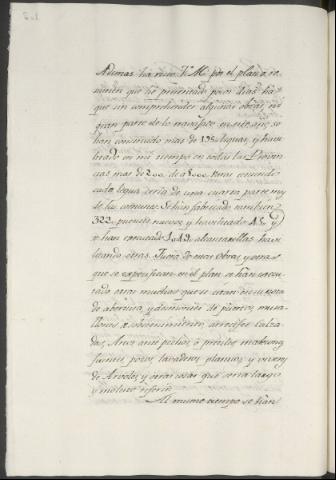 Ademas ha visto V. M. por el plan o re-
sumen que he presentado pocos dias ha
que sin comprehender algunas obras, ni
gran parte de lo que en este año, se
han construido mas de 195. leguas, y havi-
litado en mi tiempo en todas las Provin-
cias mas de 200. de a 8000. varas siendo
cada legua cerca de una cuarta parte ma-
yor de las comunes. Se han fabricado
322. puentes nuevos y havilitado 45. y
se han executado 1.049. alcantarillas havi-
litando otras. Fuera de estas obras, y otras
que se expecifican en el plan se han execu-
tado otras muchas que se
de abertura y desmontes de puertos, mura-
llones de sostenimiento, arrecifes, calza-
das, Arcos
fuentes, pozos, lavaderos, plantios, y viveros
de Arboles, y otras cosas que seria largo
y molesto referir.
Al mismo tiempo se han